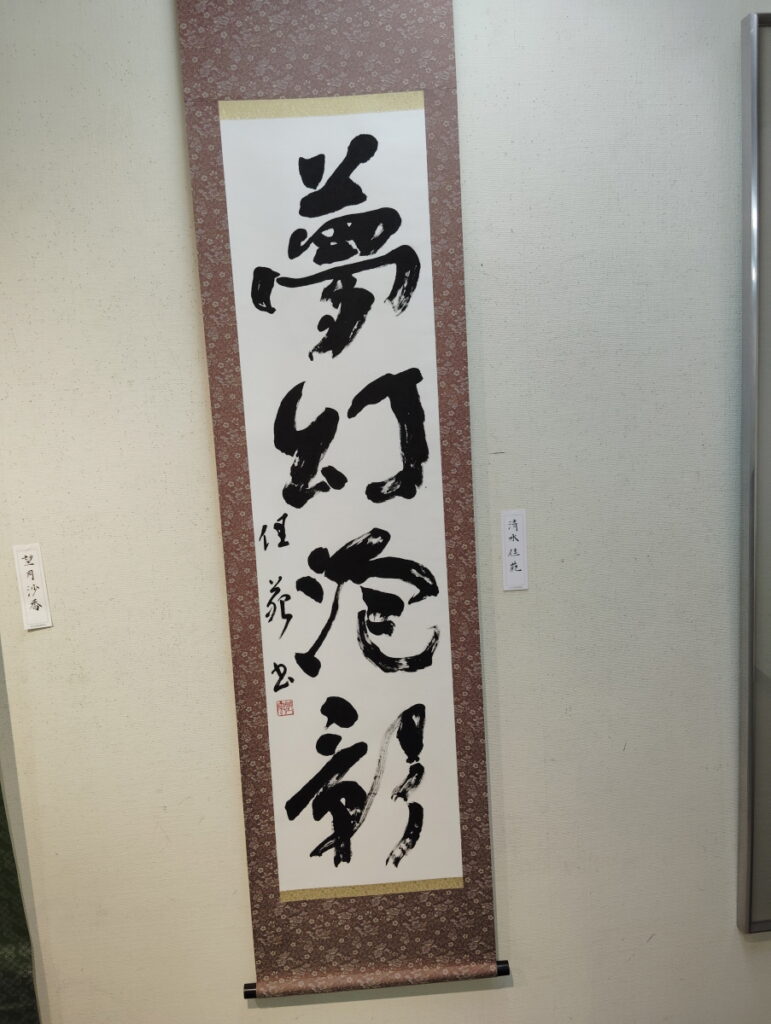 夢幻泡影
佳苑書
清水佳苑
望月沙香